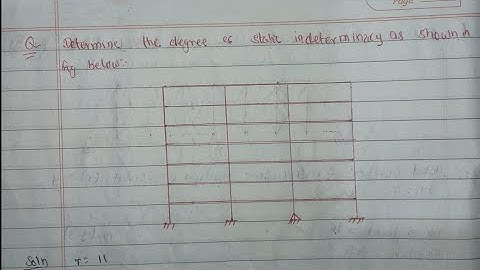 Page
Q. Determine the degree of static indeterminacy as shown in
fig below:-
Soln r = 11